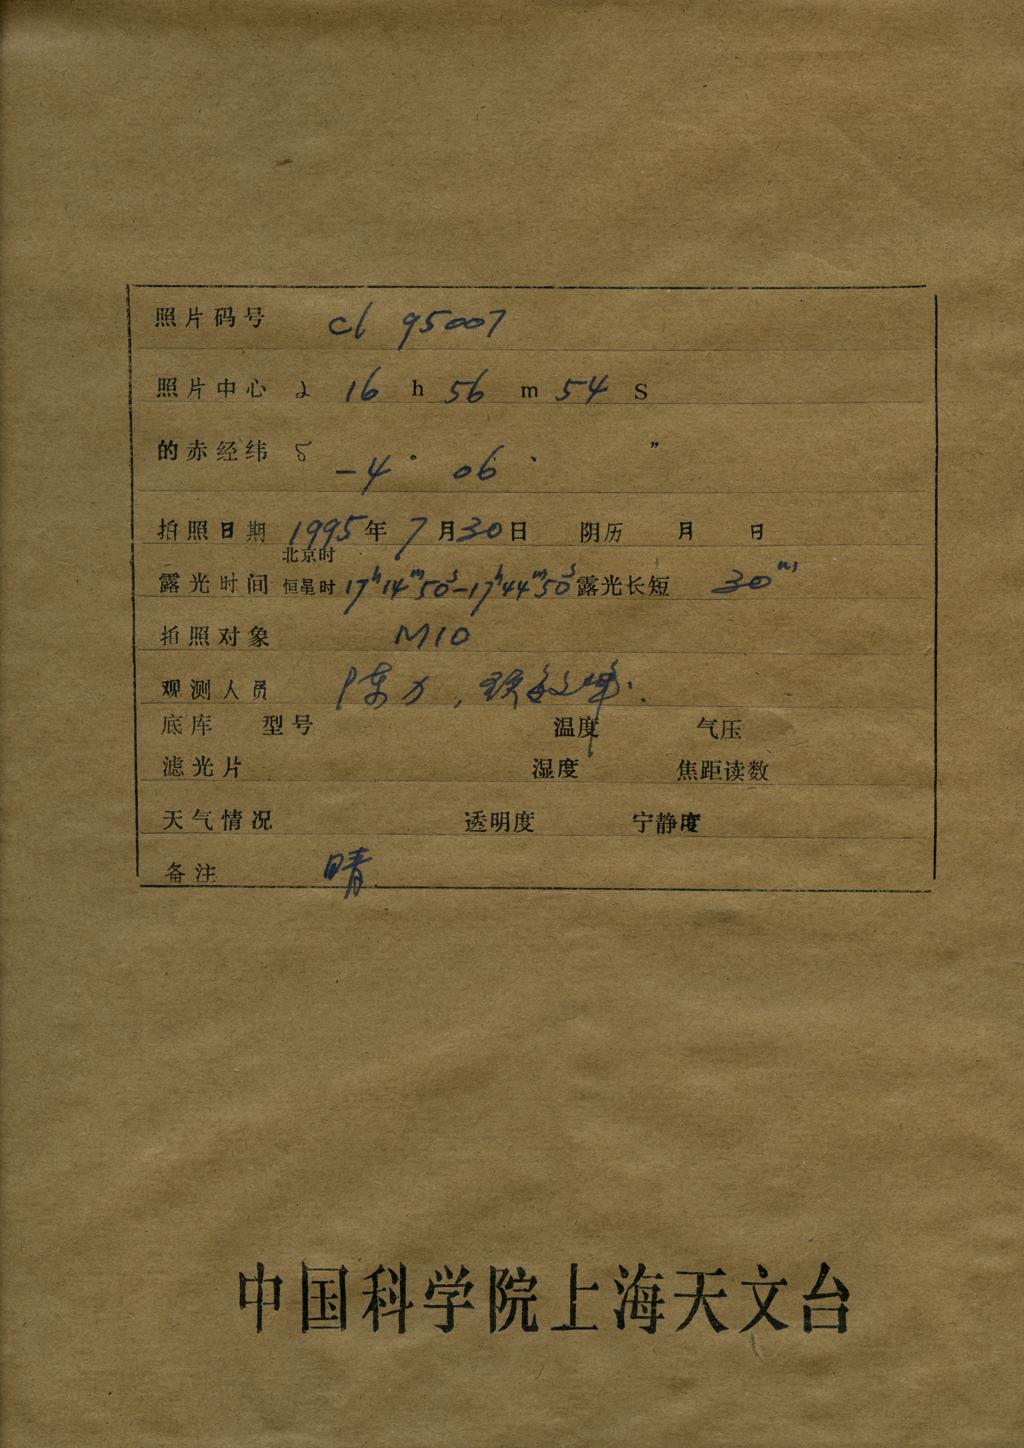 照片码号 cl 95007
照片中心 α 16 h 56 m 54 S
的赤经纬 δ -4° 06 ′ ″
拍照日期 1995年 7月30日 阴历 月 日
北京时
露光时间 恒星时 17h14m50s-17h44m50s 露光长短 30m
拍照对象 M10
观测人员 陈力,
底库 型号 温度 气压
滤光片 湿度 焦距读数
天气情况 透明度 宁静度
备注 晴
中国科学院上海天文台